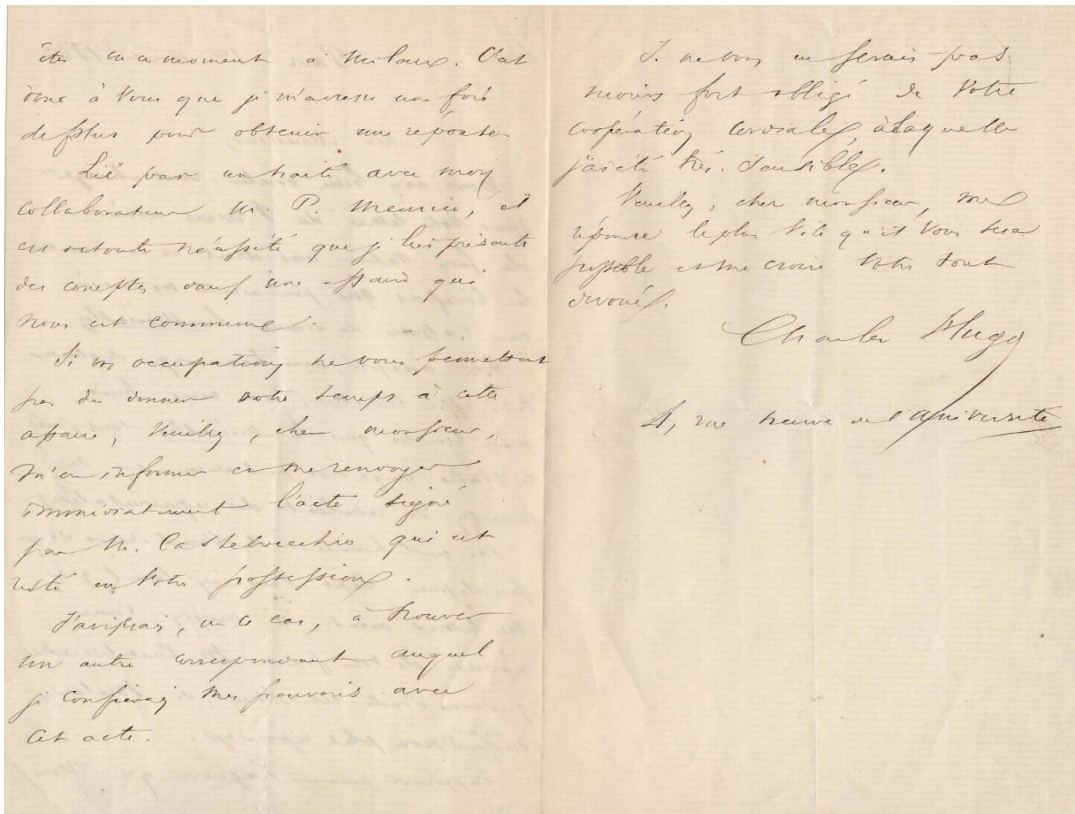 êtes en ce moment à Milan. C'est
donc à vous que je m'adresse une fois
de plus pour obtenir une réponse.
Lié par un traité avec mon
collaborateur M. P. Meurice, il
est de toute nécessité que je lui présente
des comptes dans une affaire qui
nous est commune.
Si vos occupations ne vous permettent
pas de donner votre temps à cette
affaire, veuillez, cher monsieur,
m'en informer et me renvoyer
immédiatement l'acte signé
par M. Castelvecchio qui est
resté en votre possession.
J'aviserai, en ce cas, à trouver
un autre correspondant auquel
je confierai mes pouvoirs avec
cet acte.
Je ne vous en serais pas
moins fort obligé de votre
coopération cordiale, à laquelle
j'ai été très sensible.
Veuillez, cher monsieur, me
répondre le plus vite qu'il vous sera
possible et me croire votre tout
dévoué.
Charles Hugo
4, rue neuve de l'université